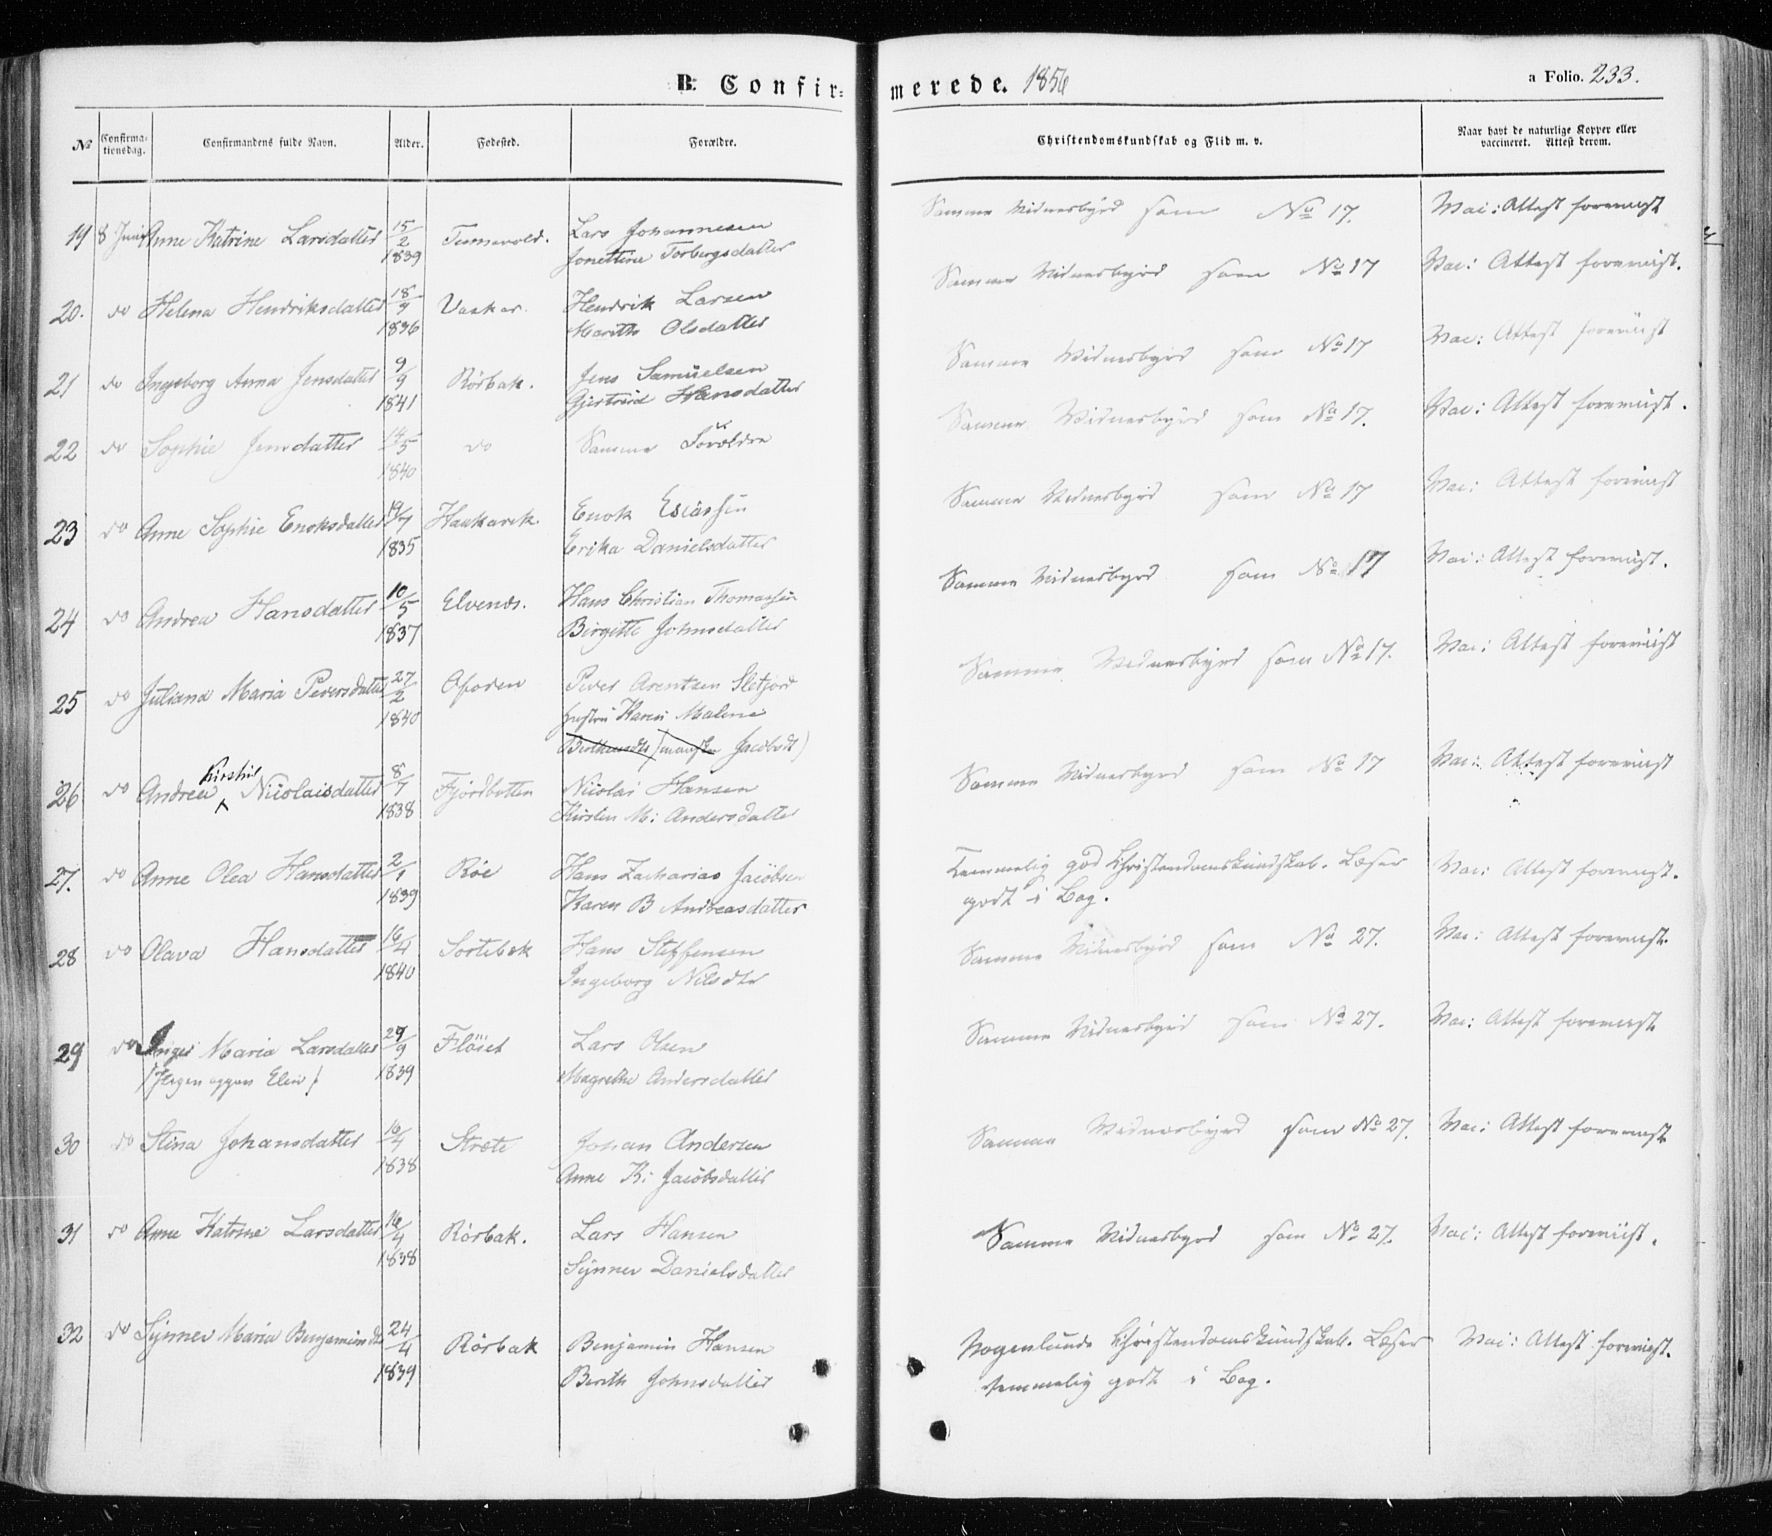 B. Confirmerede. 1856
a Folio. 233.
No Confirmationsdag. Confirmandens fulde Navn. Alder. Fødested. Forældre. Christendomskundskab og Flid m. v. Naar havt de naturlige Kopper eller vaccineret. Attest derom.
19 8 Juni Anne Katrine Larsdatter 15/2 1839 Lars Johannesen Samme Vidnesbyrd som No 17. Vac: Attest forevist
Jonettine Torbergsdatter
20. do Helena Hendriksdatter 18/9 1836 Vaskar. Hendrik Larsen Samme Vidnesbyrd som No 17 Vac: Attest forevist.
Marith Olsdatter
21 do Ingeborg Anna Jensdatter 9/9 1841 Rørbak. Jens Samuelsen Samme Vidnesbyrd som No 17 Vac: Attest forevist
Gjertrud Hansdatter
22 do Sophie Jensdatter 14/5 1840 do Samme Forældre Samme Vidnesbyrd som No 17. Vac: Attest forevist.
23 do Anne Sophie Enoksdatter 19/7 1835 Haukavik. Enok Esiassen Samme Vidnesbyrd som No 17 Vac: Attest forevist
Erika Danielsdatter
24 do Andrea Hansdatter 10/5 1837 Elvenes. Hans Christian Thomassen Samme Vidnesbyrd som No 17 Vac: Attest forevist.
Birgitte Johnsdatter
25 do Juliana Maria Pedersdatter 27/2 1840 Ofoden Peder Arentsen Sletjord Samme Vidnesbyrd som No 17. Vac: Attest forevist
Hustru Karen Malene
Jacobsdt)
26 do Andrea Kirstin Nicolaisdatter 8/7 1838 Fjordbotten Nicolai Hansen Samme Vidnesbyrd som No 17 Vac: Attest forevist
Kirsten M: Andersdatter
27. do Anne Olea Hansdatter 2/1 1839 Røe Hans Zacharias Jacobsen Temmelig god Christendomskundskab. Læser Vac: Attest forevist.
Karen B Andreasdatter godt i Bog.
28 do Olava Hansdatter 16/4 1840 Sortebek Hans Steffensen Samme Vidnesbyrd som No 27. Vac: Attest forevist.
Ingeborg Nilsdtr
29 do Inger Maria Larsdatter 29/9 1839 Flöiet Lars Olsen Samme Vidnesbyrd som No 27. Vac: Attest forevist
Elen) Magrethe Andersdatter
30 do Stina Johansdatter 16/4 1838 Stræte Johan Andersen Samme Vidnesbyrd som No 27. Vac: Attest forevist
Anne K: Jacobsdatter
31 do Anne Katrine Larsdatter 16/4 1838 Rørbak. Lars Hansen Samme Vidnesbyrd som No 27. Vac: Attest forevist.
Synnev Danielsdatter
32 do Synnev Maria Benjaminsdtr 24/4 1839 Rørbak Benjamin Hansen Nogenlunde Christendomskundskab. Læser Vac: Attest forevist.
Berith Johnsdatter temmelig godt i Bog.